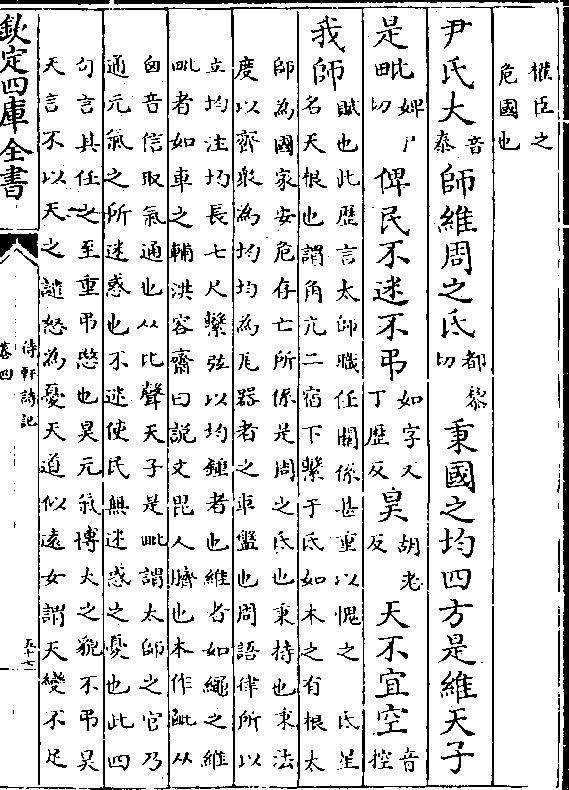 權臣之
危國也
尹氏大音泰師維周之氐都黎切秉國之均四方是維天子
是毗婢尸切俾民不迷不弔如字又丁歷反昊胡老反天不宜空音控
我師
賦也此歷言太師職任關係甚重以愧之 氐星
名天根也謂角亢二宿下繫于氐如木之有根太
師為國家安危存亡所係是周之氐也秉持也秉法
度以齊衆為均均為瓦器者之車盤也周語律所以
立均注均長七尺繫弦以均鍾者也維者如繩之維
毗者如車之輔洪容齋曰說文毘人臍也本作毗从
囟音信取氣通也从比聲天子是毗謂太師之官乃
通元氣之所迷惑也不迷使民無迷惑之憂也此四
句言其任之至重弔愍也昊元氣博大之貌不弔昊
天言不以天之譴怒為憂天道似遠女謂天變不足
欽定四庫全書
待軒詩記
卷四